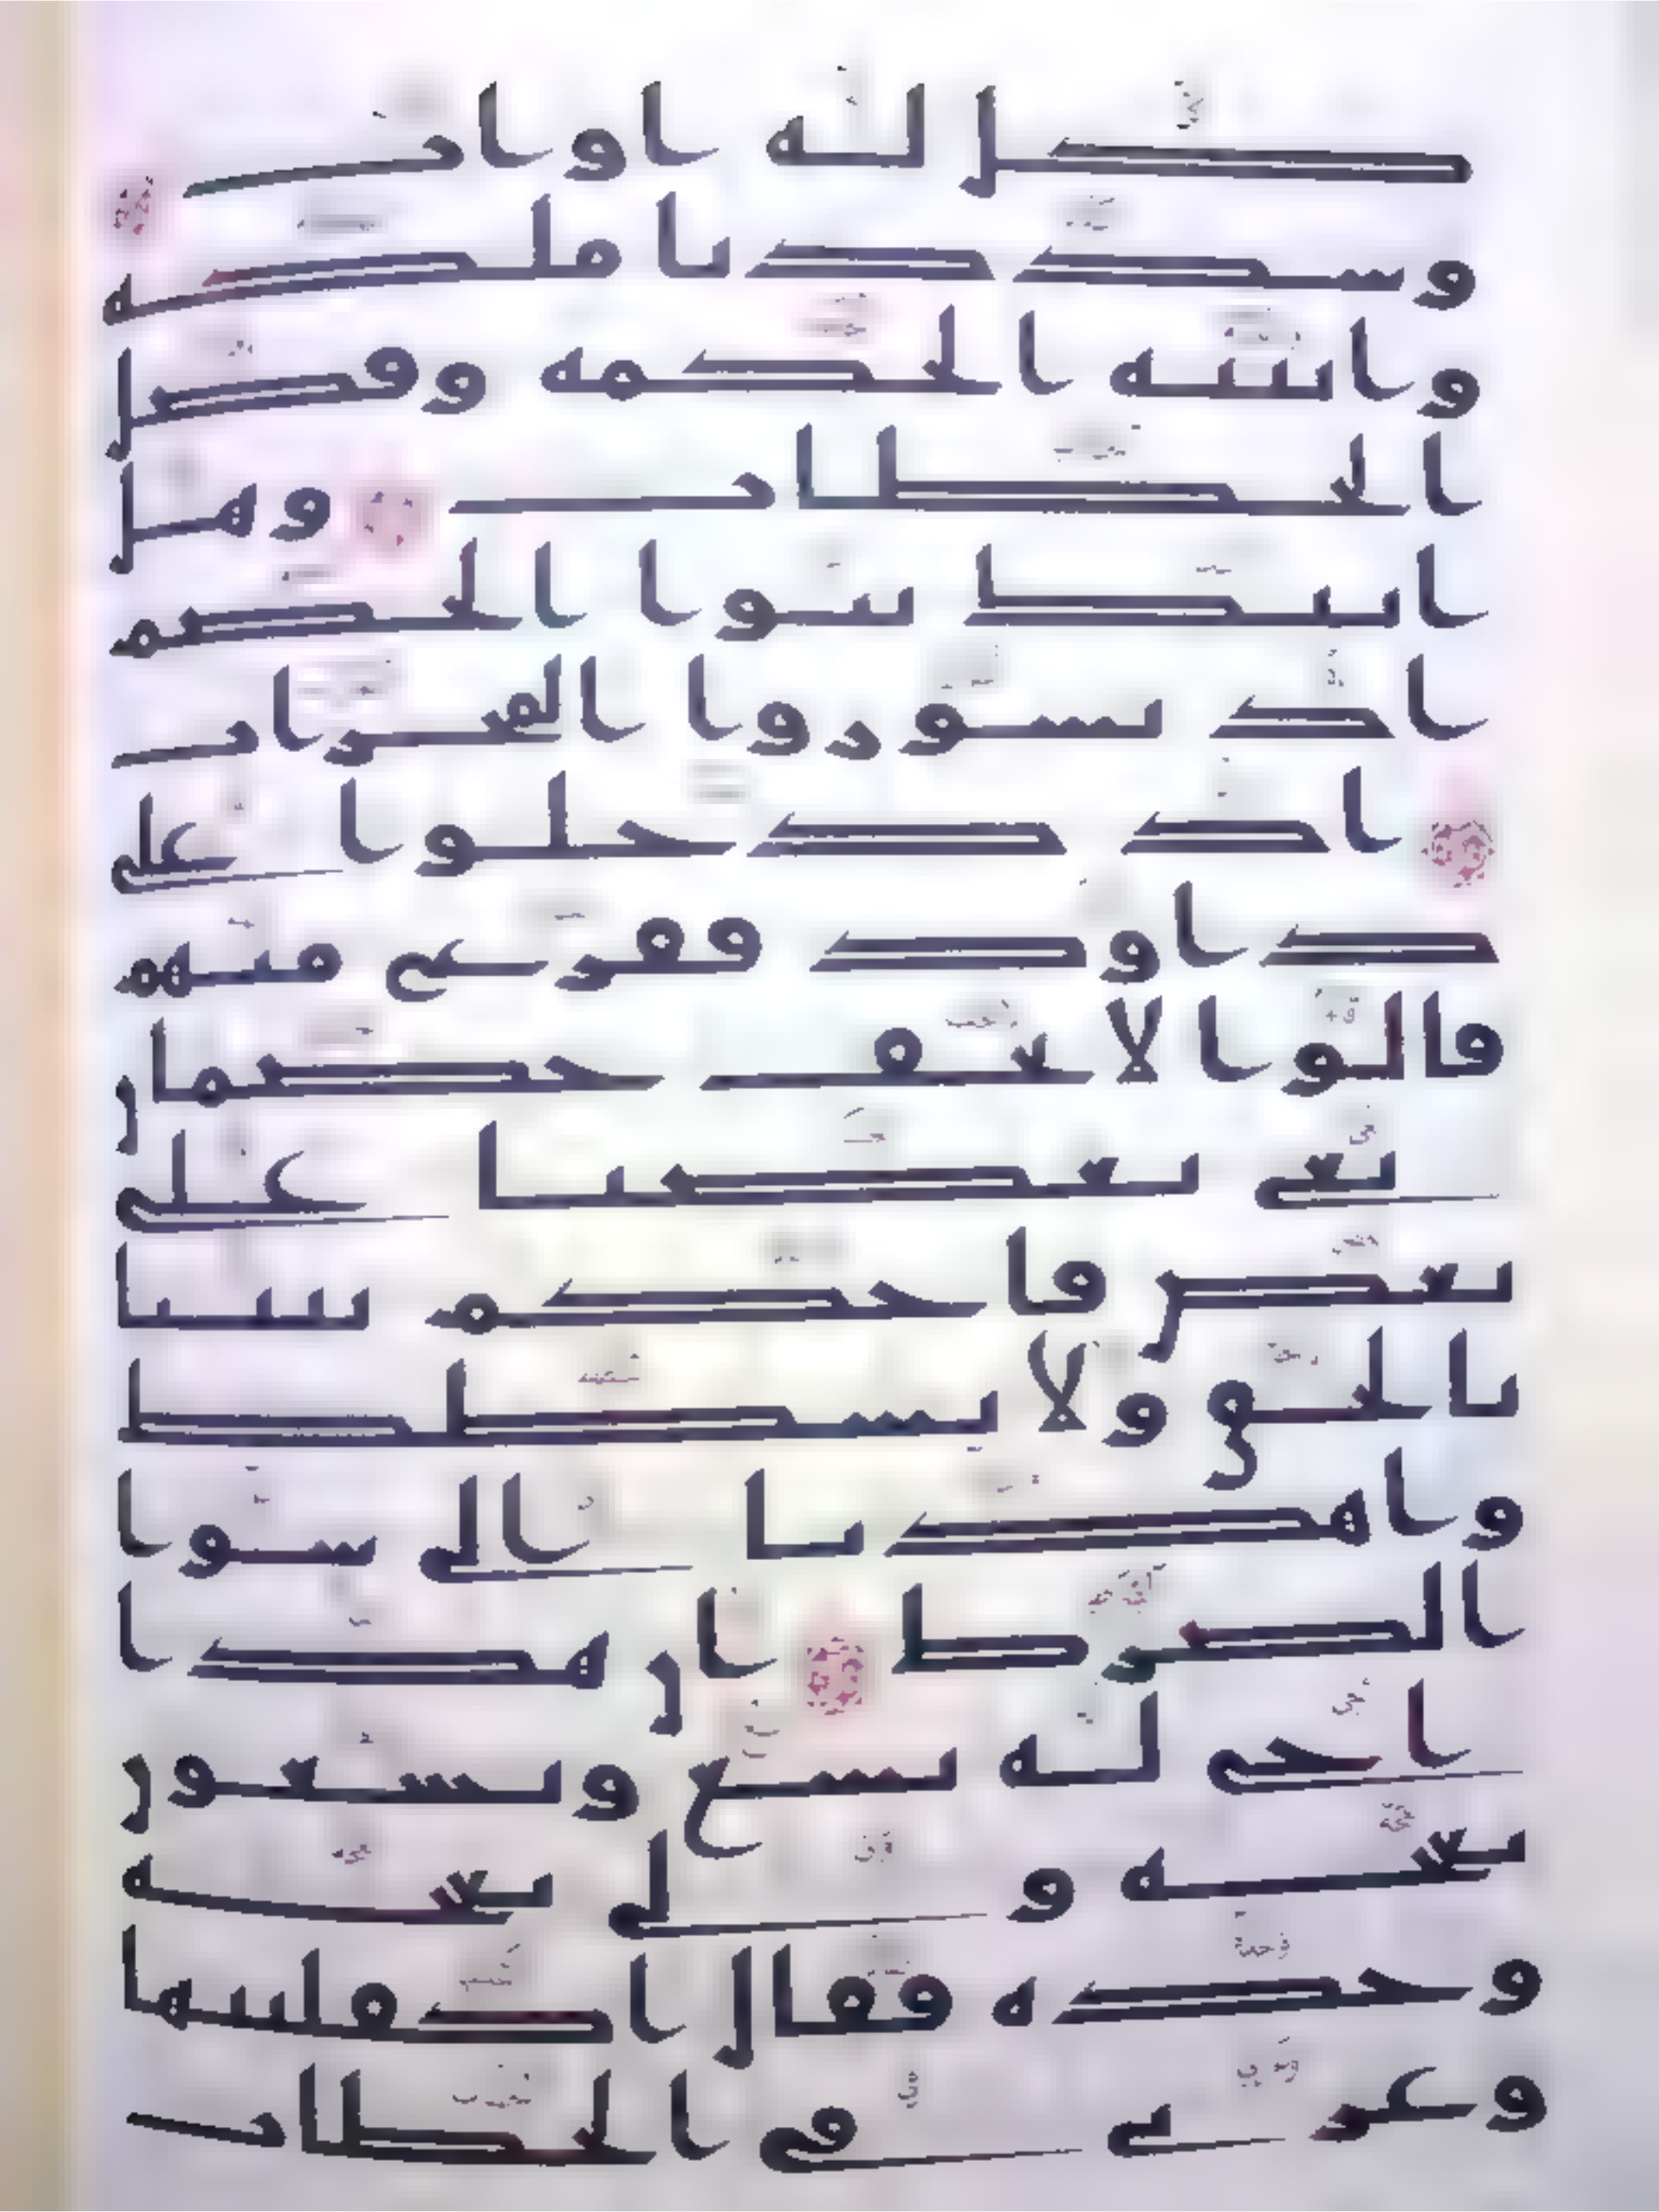 كل له اواب
وشددنا ملكه
واتينه الحكمه وفصل
الخطاب وهل
اتيك نبوا الخصم
اذ تسوروا المحراب
اذ دخلوا على
داود ففزع منهم
قالوا لا تخف خصمان
بغى بعضنا على
بعض فاحكم بيننا
بالحق ولا تشطط
واهدنا الى سوا
الصرط ان هذا
اخى له تسع وتسعون
نعجه ولى نعجه
وحده فقال اكفلنيها
وعزنى فى الخطاب